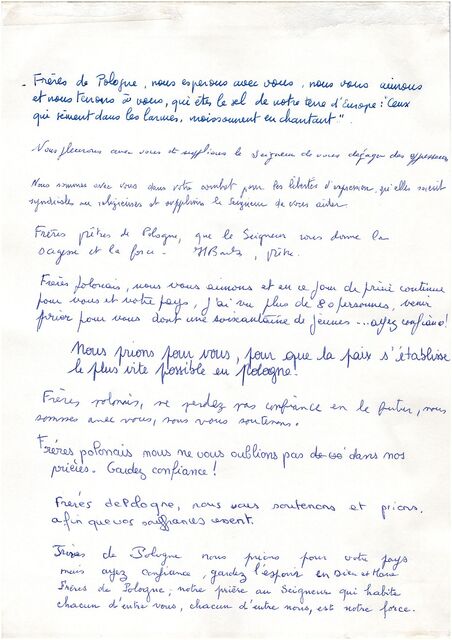 - Frères de Pologne, nous esperons avec vous, nous vous aimons
et nous tenons à vous, qui êtes le sel de notre terre d'Europe : "Ceux
qui sèment dans les larmes, moissonnent en chantant".
Nous pleurons avec vous et supplions le Seigneur de vous dégager des oppresseurs
Nous sommes avec vous dans votre combat pour les libertés d'expression, qu'elles soient
syndicales ou religieuses et supplions le Seigneur de vous aider
Frères prêtres de Pologne, que le Seigneur vous donne la
sagesse et la force. prêtre.
Frères polonais, nous vous aimons et en ce jour de prière continue
pour vous et votre pays, j'ai vu plus de 80 personnes, venir
prier pour vous dont une soixantaine de jeunes ... ayez confiance!
Nous prions pour vous, pour que la paix s'établisse
le plus vite possible en pologne!
Frères polonais, ne perdez pas confiance en le futur, nous
sommes avec vous, nous vous soutenons.
Frères polonais nous ne vous oublions pas dans nos
prières. Gardez confiance!
Frères de Pologne, nous vous soutenons et prions.
afin que vos souffrances cessent.
Frères de Pologne nous prions pour votre pays
mais ayez confiance, gardez l'espoir en Dieu et Marie
Frères de Pologne, notre prière au Seigneur qui habite
chacun d'entre vous, chacun d'entre nous, est notre force.